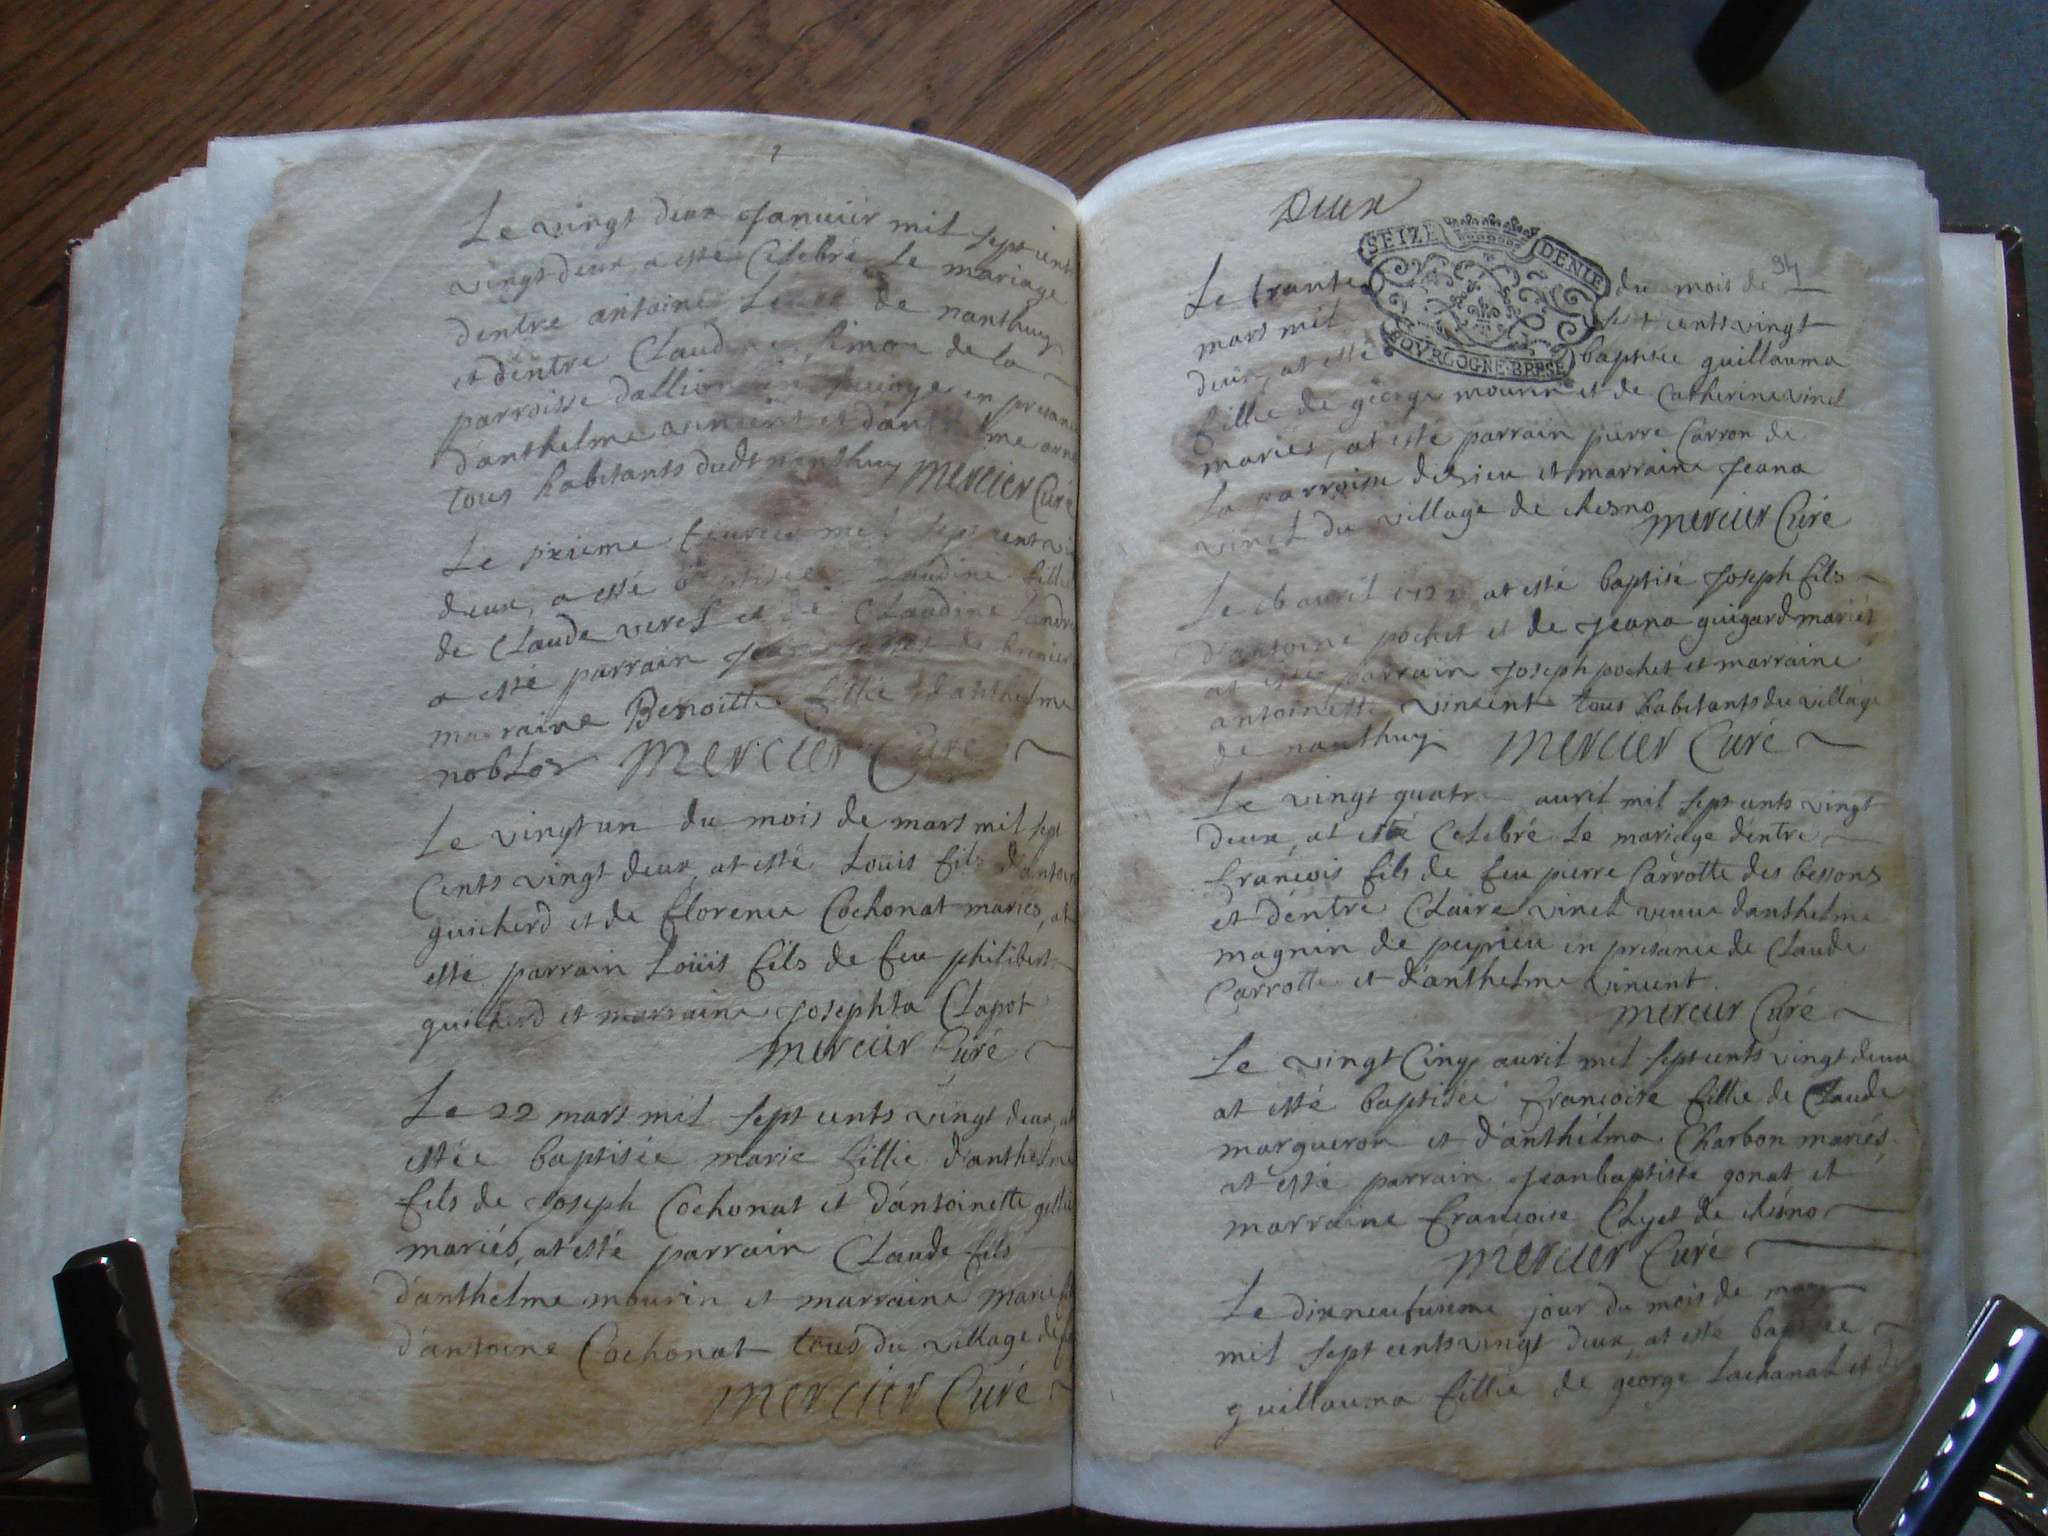 Le vingt deux Janvier mil sept cents
vingt deux, a esté Celebré Le mariage
dentre antoine de nanthuy
et dentre Claudine simon de la
parroisse dallion en savoye en presance
danthelme vincent et danthelme
tous habitants dudt nanthuy mercier Curé
Le sixieme feuvrier mil sept cent vin
deux, a esté baptisée Claudine fillie
de Claude veret et de Claudine Landre
a esté parrain Jean de
marraine Benoitte fillie danthelme
noblos mercier Curé
Le vingt un du mois de mars mil sept
Cents vingt deux, at esté Loüis fils dantoin
guicherd et de florence Cochonat mariés, at
esté parrain Loüis fils de feu philibert
guicherd et marraine Josephta Clapot
mercier Curé
Le 22 mars mil sept cents vingt deux, at
estée baptisée marie fillie danthelme
fils de Joseph Cochonat et dantoinette
mariés, at esté parrain Claude fils
danthelme mourin et marraine marie
dantoine Cochonat tous du village de
mercier Curé
Deux
SEIZE DENIE
BOVRGOGNE·BRESSE
94
Le trante du mois de
mars mil sept cents vingt
deux, at esté baptisée guillauma
fillie de george mourin et de Catherine vinet
mariés, at esté parrain pierre Carron de
La parroisse dizieu et marraine Jeana
vinet du village de chesno mercier Curé
Le 16 avril 1722 at esté baptisé Joseph fils
dantoine pochet et de Jeana guigard mariés
at esté parrain Joseph pochet et marraine
antoinette vincent tous habitants du village
de nanthuy mercier Curé
Le vingt quatre avril mil sept cents vingt
deux, at esté Celebré Le mariage dentre
francois fils de feu pierre Carrotte des bessons
et dentre Claire vinet veuve danthelme
magnin de peyrieu en presance de Claude
Carrotte et danthelme vincent.
mercier Curé
Le vingt Cinq avril mil sept cents vingt deux
at esté baptisée francoise fillie de Claude
margueron et danthelma Charbon mariés,
at esté parrain Jeanbaptiste gonat et
marraine francoise Chyet de chesno
mercier Curé
Le dixneufvieme jour du mois de may
mil sept cents vingt deux, at esté baptisée
guillauma fillie de george Lachanal et de